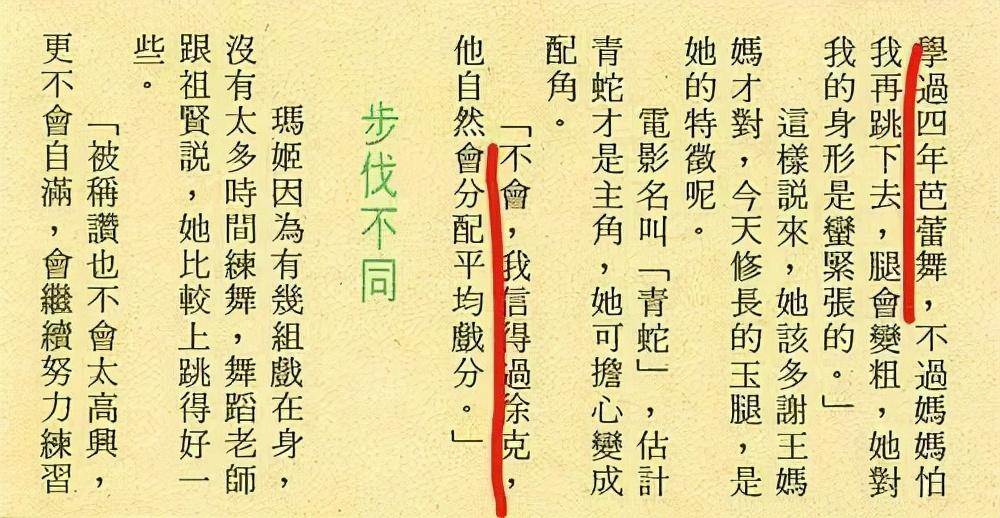 學過四年芭蕾舞，不過媽媽怕
我再跳下去，腿會變粗，她對
我的身形是蠻緊張的。」
這樣說來，她該多謝王媽
媽才對，今天修長的玉腿，是
她的特徵呢。
電影名叫「青蛇」，估計
青蛇才是主角，她可擔心變成
配角。
「不會，我信得過徐克，
他自然會分配平均戲分。」
步伐不同
瑪姬因為有幾組戲在身，
沒有太多時間練舞，舞蹈老師
跟祖賢說，她比較上跳得好一
些。
「被稱讚也不會太高興，
更不會自滿，會繼續努力練習